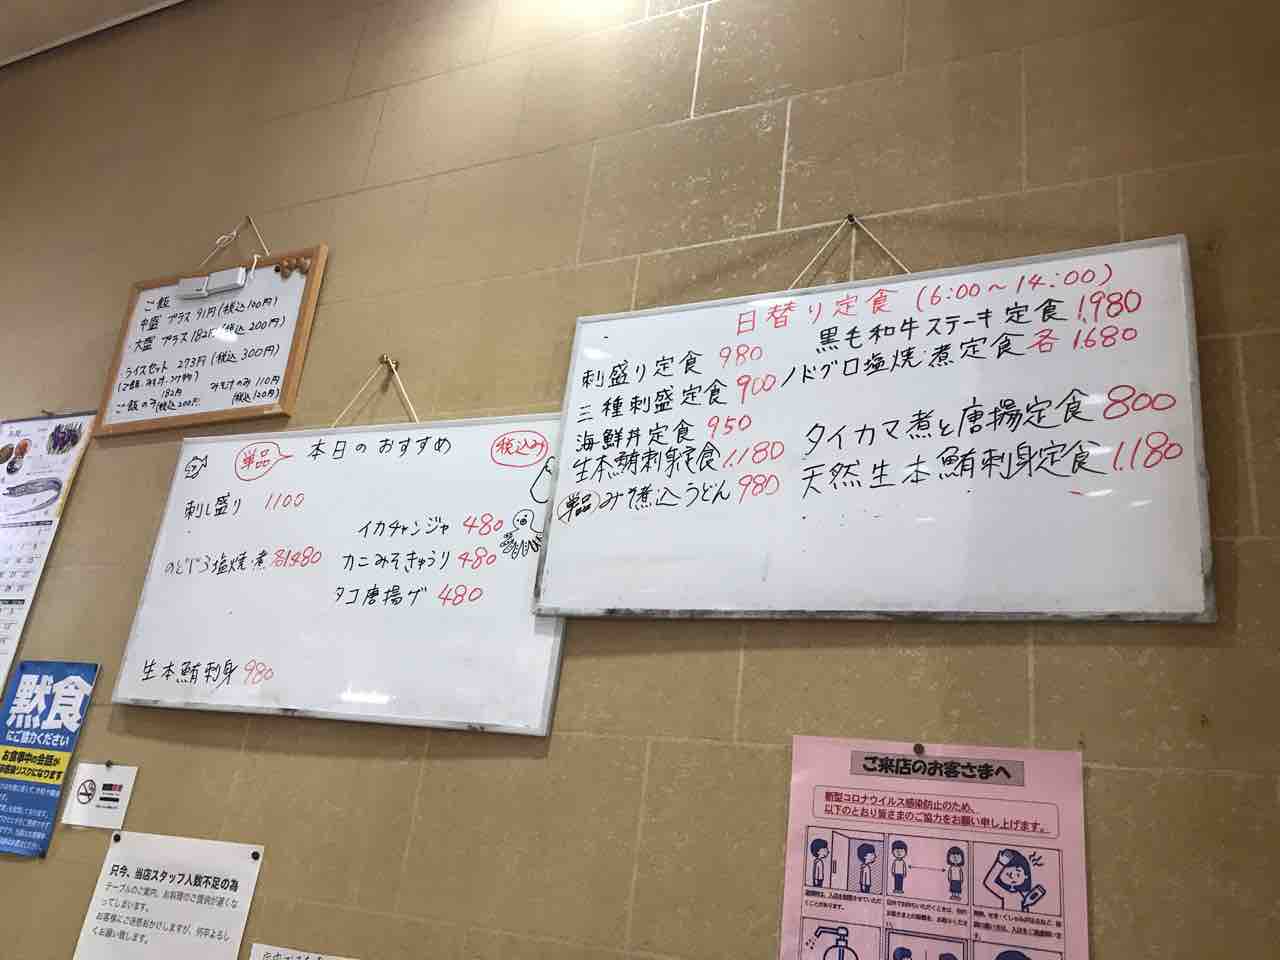 ご飯
中盛 プラス 91円(税込100円)
大盛 プラス 182円(税込200円)
・ライスセット 273円(税込300円)
みそ汁のみ 110円
182円 (税込120円)
ご飯のみ(税込200円)
単品
本日のおすすめ
税込み
刺し盛り 1.100
イカチャンジャ 480
のどぐろ塩焼・煮 各1.480
カニみそきゅうり 480
タコ唐揚げ 480
生本鮪刺身 980
日替り定食(6:00〜14:00)
刺盛り定食 980
三種刺盛定食 900
海鮮丼定食 950
生本鮪刺身定食 1.180
単品 みそ煮込うどん 980
黒毛和牛ステーキ定食 1.980
ノドグロ塩焼・煮定食 各1.680
タイカマ煮と唐揚定食 800
天然生本鮪刺身定食 1.180
黙食
にご協力ください
お食事中の会話が
只今、当店スタッフ人数不足の為
テーブルのご案内、お料理のご提供が遅くなってしまいます。
お客様にご迷惑おかけしますが、何卒よろしくお願い致します。
ご来店のお客さまへ
新型コロナウイルス感染防止のため、
以下のとおり皆さまのご協力をお願い申し上げます。